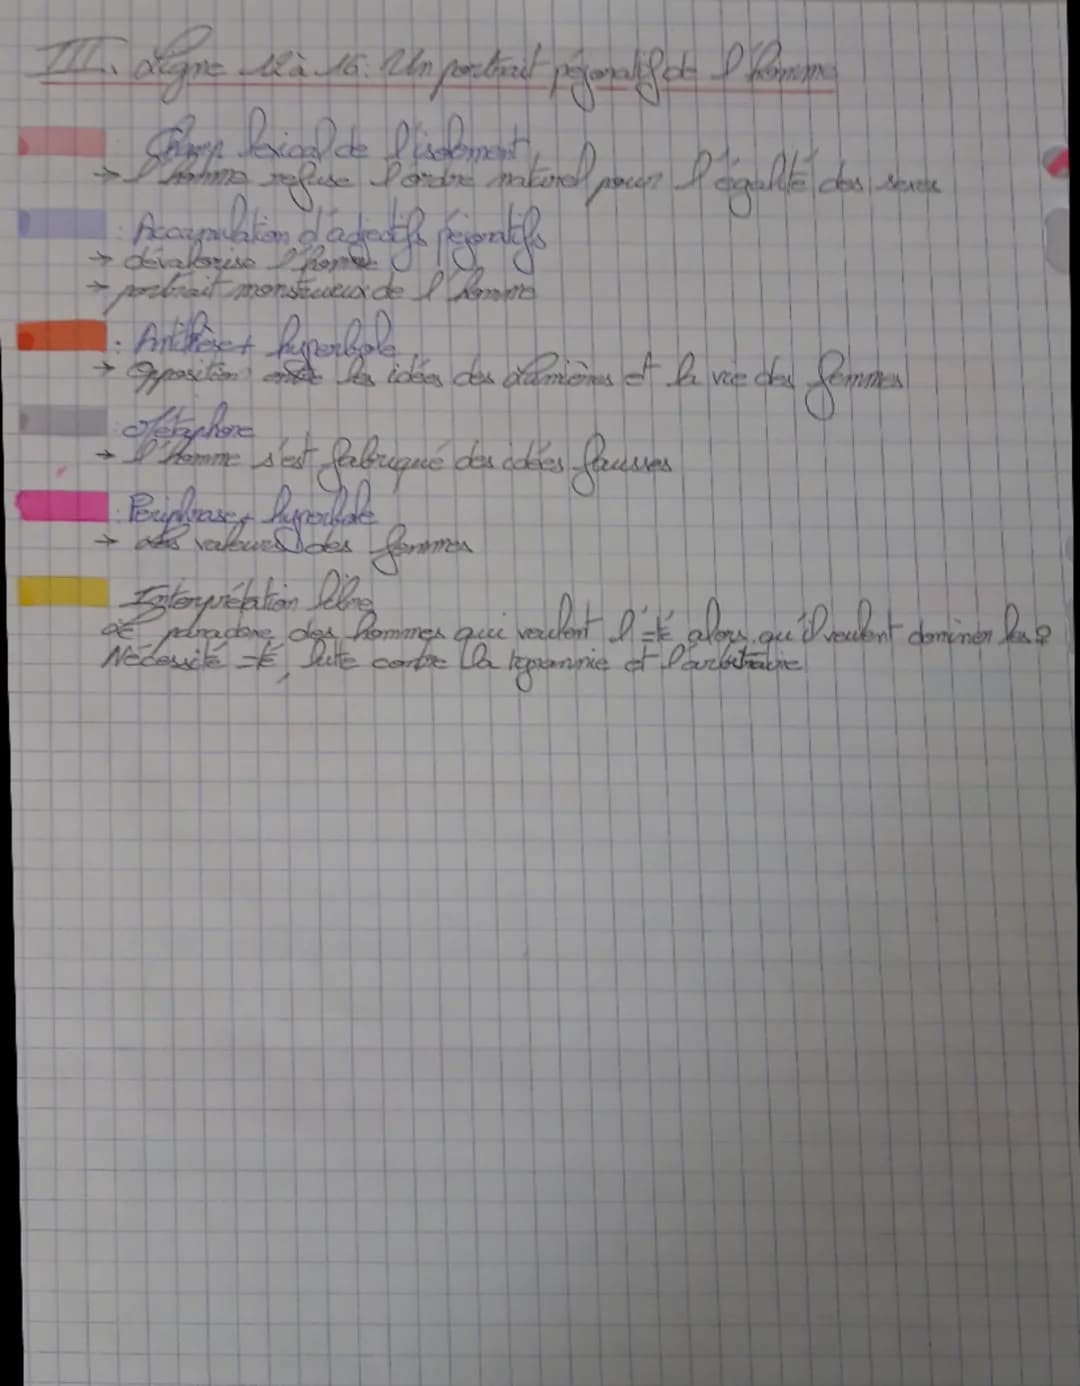 III. Ligne 12 à 16: Un portrait péjoratif de l'homme
Champ lexical de l'isolement
→ l'homme refuse l'ordre naturel pour l'égalité des sexes
: Accumulation d'adjectifs péjoratifs
→ dévalorise l'homme
→ portrait monstrueux de l'homme
: Antithèse + hyperbole
→ Opposition entre les idées des Lumières et la vie des femmes
: Métaphore
→ l'homme s'est fabriqué des idées fausses
: Périphrase + hyperbole
→ des valeurs des femmes
Interprétation libre
Le paradoxe des hommes qui veulent l'=té alors qu'il veulent dominer les ♀
Nécessité =té, lute contre la tyrannie et l'arbitraire